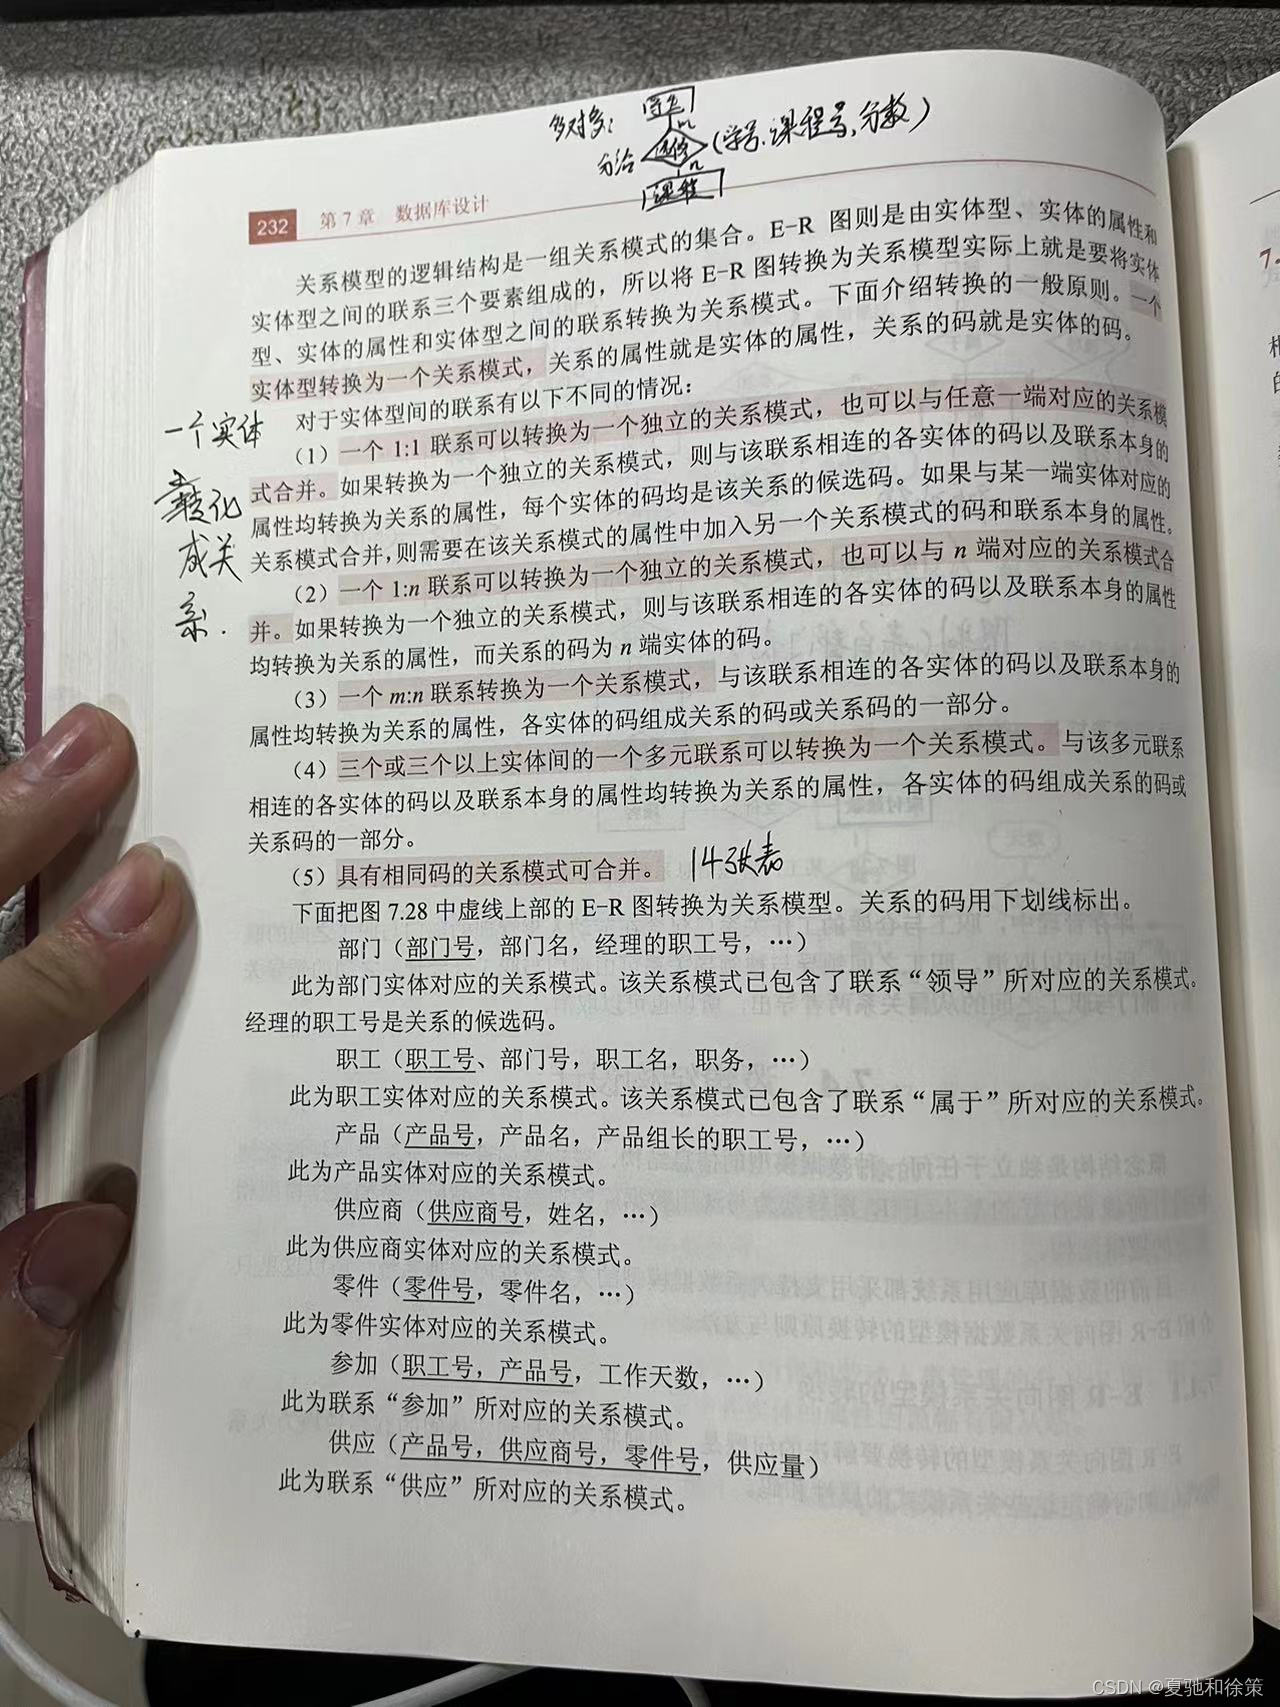 多对多：
学生
m
选修
(学号、课程号,分数)
n
课程
232 第7章 数据库设计
关系模型的逻辑结构是一组关系模式的集合。E-R 图则是由实体型、实体的属性和
实体型之间的联系三个要素组成的，所以将 E-R 图转换为关系模型实际上就是要将实体
型、实体的属性和实体型之间的联系转换为关系模式。下面介绍转换的一般原则。一个
实体型转换为一个关系模式，关系的属性就是实体的属性，关系的码就是实体的码。
对于实体型间的联系有以下不同的情况：
（1）一个 1:1 联系可以转换为一个独立的关系模式，也可以与任意一端对应的关系模
式合并。如果转换为一个独立的关系模式，则与该联系相连的各实体的码以及联系本身的
属性均转换为关系的属性，每个实体的码均是该关系的候选码。如果与某一端实体对应的
关系模式合并,则需要在该关系模式的属性中加入另一个关系模式的码和联系本身的属性。
（2）一个 1:n 联系可以转换为一个独立的关系模式，也可以与 n 端对应的关系模式合
并。如果转换为一个独立的关系模式，则与该联系相连的各实体的码以及联系本身的属性
均转换为关系的属性，而关系的码为 n 端实体的码。
（3）一个 m:n 联系转换为一个关系模式，与该联系相连的各实体的码以及联系本身的
属性均转换为关系的属性，各实体的码组成关系的码或关系码的一部分。
（4）三个或三个以上实体间的一个多元联系可以转换为一个关系模式。与该多元联系
相连的各实体的码以及联系本身的属性均转换为关系的属性，各实体的码组成关系的码或
关系码的一部分。
（5）具有相同码的关系模式可合并。 14张表
下面把图 7.28 中虚线上部的 E-R 图转换为关系模型。关系的码用下划线标出。
部门（部门号，部门名，经理的职工号，…）
此为部门实体对应的关系模式。该关系模式已包含了联系“领导”所对应的关系模式。
经理的职工号是关系的候选码。
职工（职工号、部门号，职工名，职务，…）
此为职工实体对应的关系模式。该关系模式已包含了联系“属于”所对应的关系模式。
产品（产品号，产品名，产品组长的职工号，…）
此为产品实体对应的关系模式。
供应商（供应商号，姓名，…）
此为供应商实体对应的关系模式。
零件（零件号，零件名，…）
此为零件实体对应的关系模式。
参加（职工号，产品号，工作天数，…）
此为联系“参加”所对应的关系模式。
供应（产品号，供应商号，零件号，供应量）
此为联系“供应”所对应的关系模式。
一个实体
转化
成关
系.
7.
CSDN @夏驰和徐策